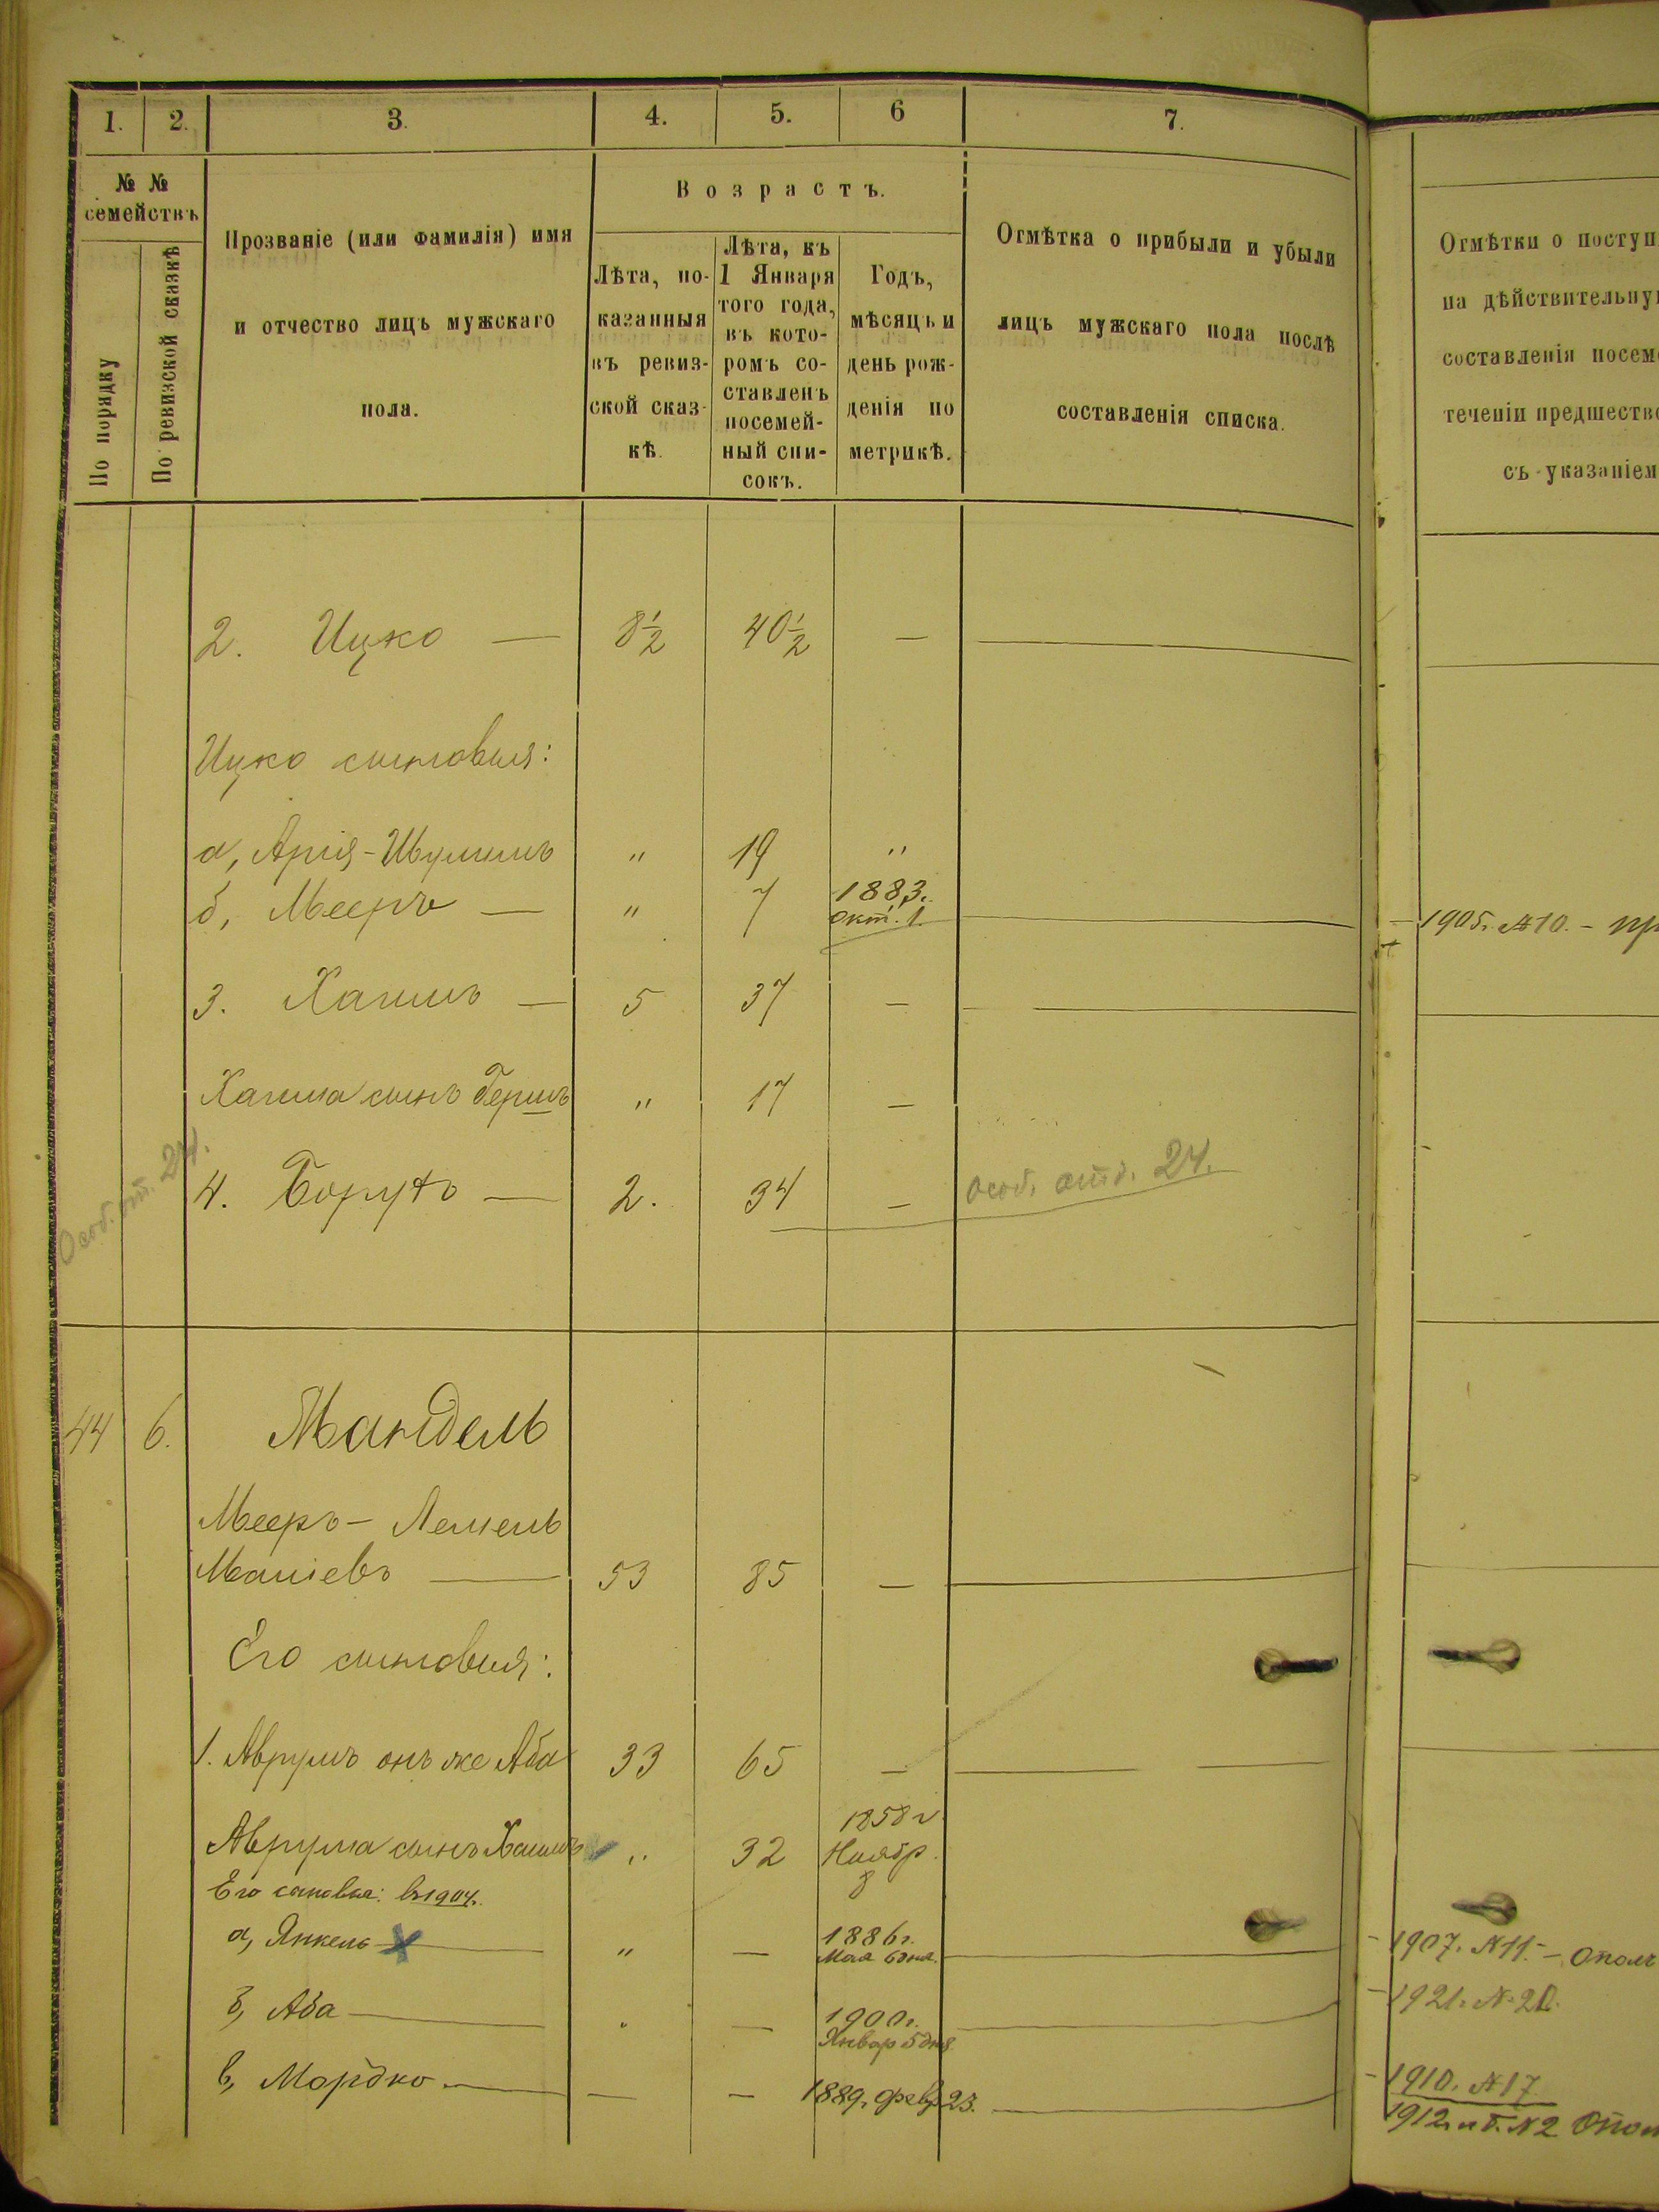 1. 2. 3. 4. 5. 6 7.
№ №
семействъ
По порядку
По ревизской сказкѣ
Прозваніе (или фамилія) имя
и отчество лицъ мужскаго
пола.
Возрастъ.
Лѣта, по-
казанныя
въ ревиз-
ской сказ-
кѣ.
Лѣта, къ
1 Января
того года,
въ кото-
ромъ со-
ставленъ
посемей-
ный спи-
сокъ.
Годъ,
мѣсяцъ и
день рож-
денія по
метрикѣ.
Отмѣтка о прибыли и убыли
лицъ мужскаго пола послѣ
составленія списка.
Отмѣтки о поступ
на дѣйствительну
составленія посем
теченіи предшеств
съ указаніем
2. Ицко — 8½ 40½ —
Ицко сыновья:
а, Арія-Шулимъ " 19 "
б, Мееръ — " 7 1883г. Окт. 1. 1905г. №10. - пр
3. Хаимъ — 5 37 —
Хаима сынъ Гершъ " 17 —
4. Борухъ — 2. 34 — Особ. отд. 24.
Особ. от. 24.
44 6. Мандель
Мееръ - Лемель
Маніевъ — 53 85 —
Его сыновья:
1. Аврумъ онъ же Аба 33 65 —
Аврума сынъ Хаимъ " 32 1858 г. Ноябр. 8
Его сыновья: въ 1904г.
а, Янкель — " — 1886г. Мая 6 дня. 1907. №11. - Ополч
б, Аба — " — 1900г. Январ 5 дня 1921г. №20.
в, Мордко — — — 1889г. февр 23. 1910. №17
1912 №2 Опол